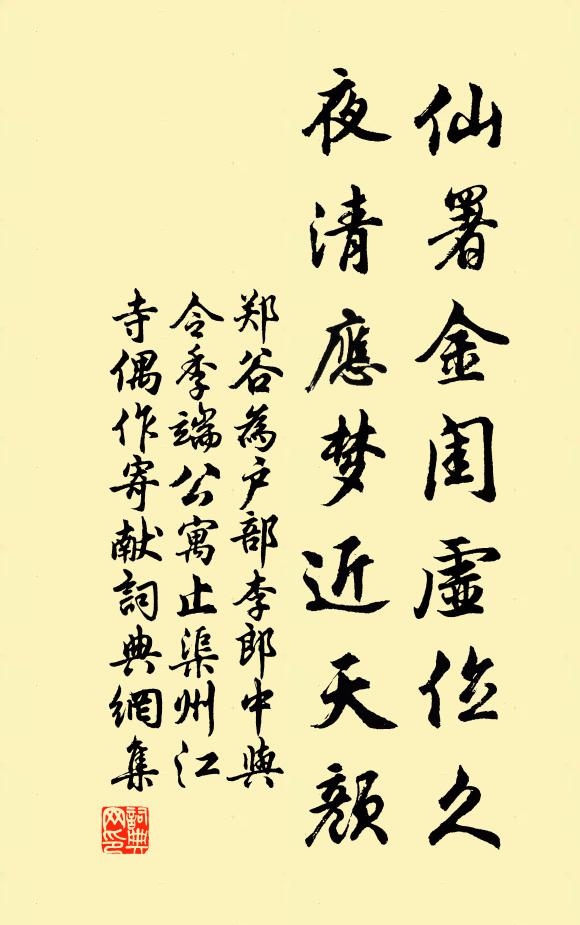 仙署金闺虚位久
夜清應梦近天颜
郑谷為户部李郎中與
令季端公寓止渠州江
寺偶作寄献詞典網集
詞典网印